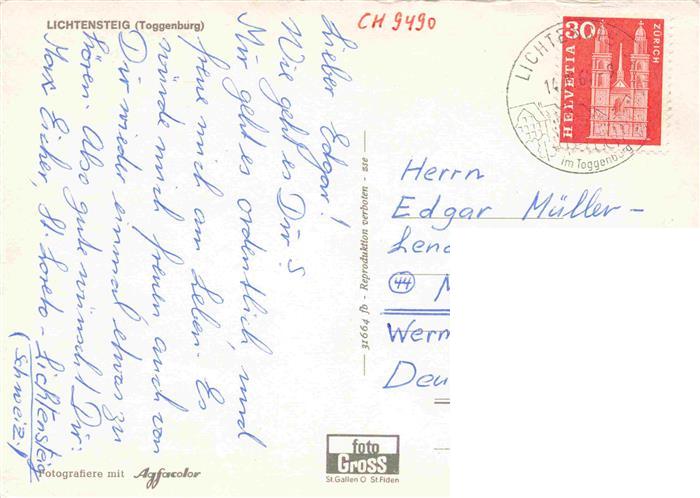 LICHTENSTEIG (Toggenburg)
CH 9490
Lieber Edgar!
Wie geht es Dir?
Mir geht es ordentlich, und
freue mich am Leben. Es
würde mich freuen auch von
Dir wieder einmal etwas zu
hören. Also gute wünscht Dir:
Max Eicher, St. Loreto - Lichtensteig
(Schweiz.)
Fotografiere mit Agfacolor
31664 fb - Reproduktion verboten - sse
foto
GROSS
St.Gallen O St.Fiden
30
HELVETIA
ZÜRICH
LICHT
im Toggenburg
Herrn
Edgar Müller-
Lend
44 M
Wern
Deu